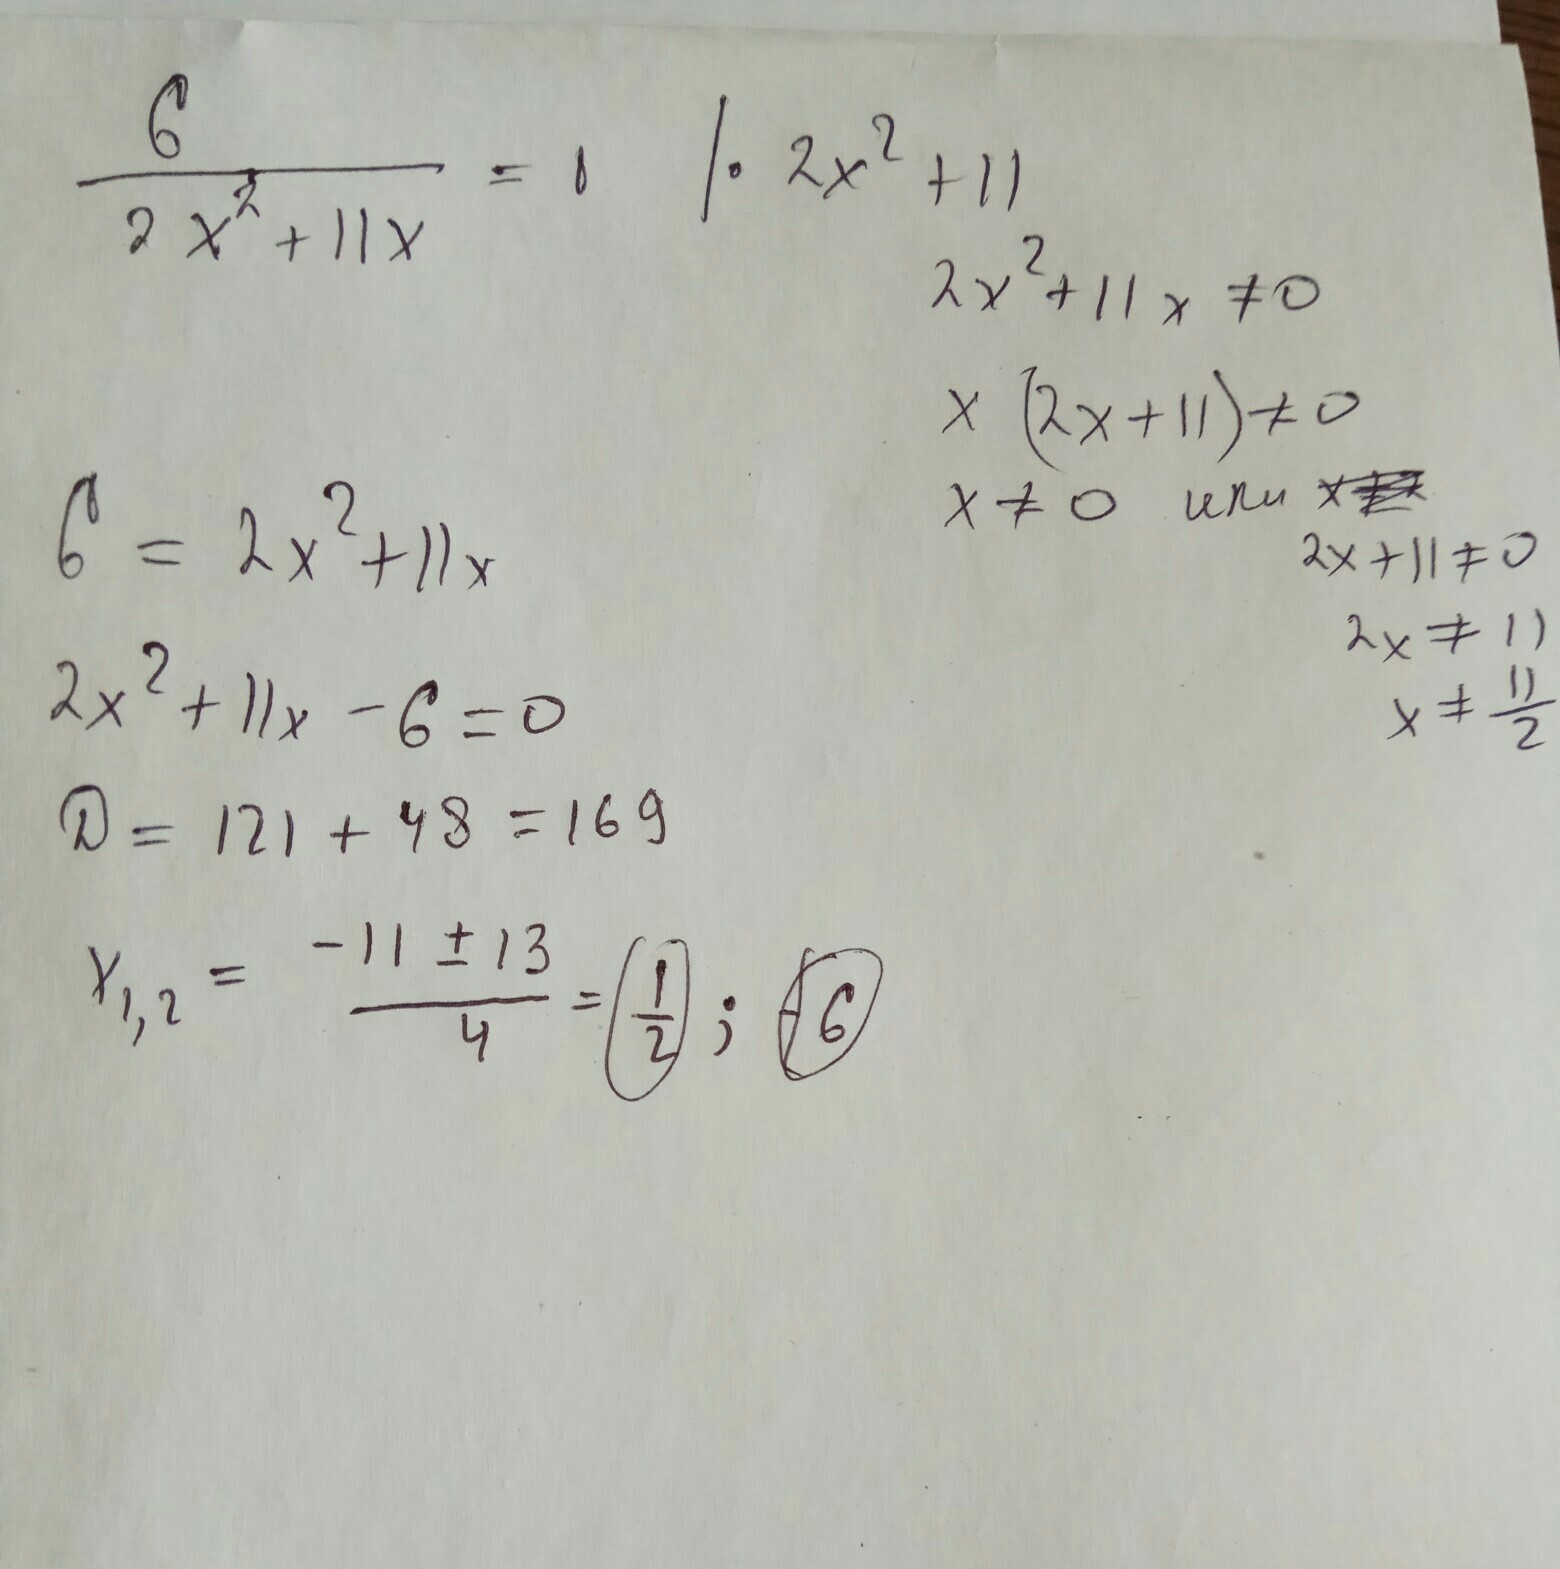 6/(2x²+11x) = 1 /· 2x²+11
2x²+11x ≠ 0
x (2x+11) ≠ 0
x ≠ 0 или x
2x+11 ≠ 0
2x ≠ 11
x ≠ 11/2
6 = 2x²+11x
2x²+11x -6=0
D = 121 + 48 = 169
x₁,₂ = (-11 ± 13)/4 = 1/2 ; -6